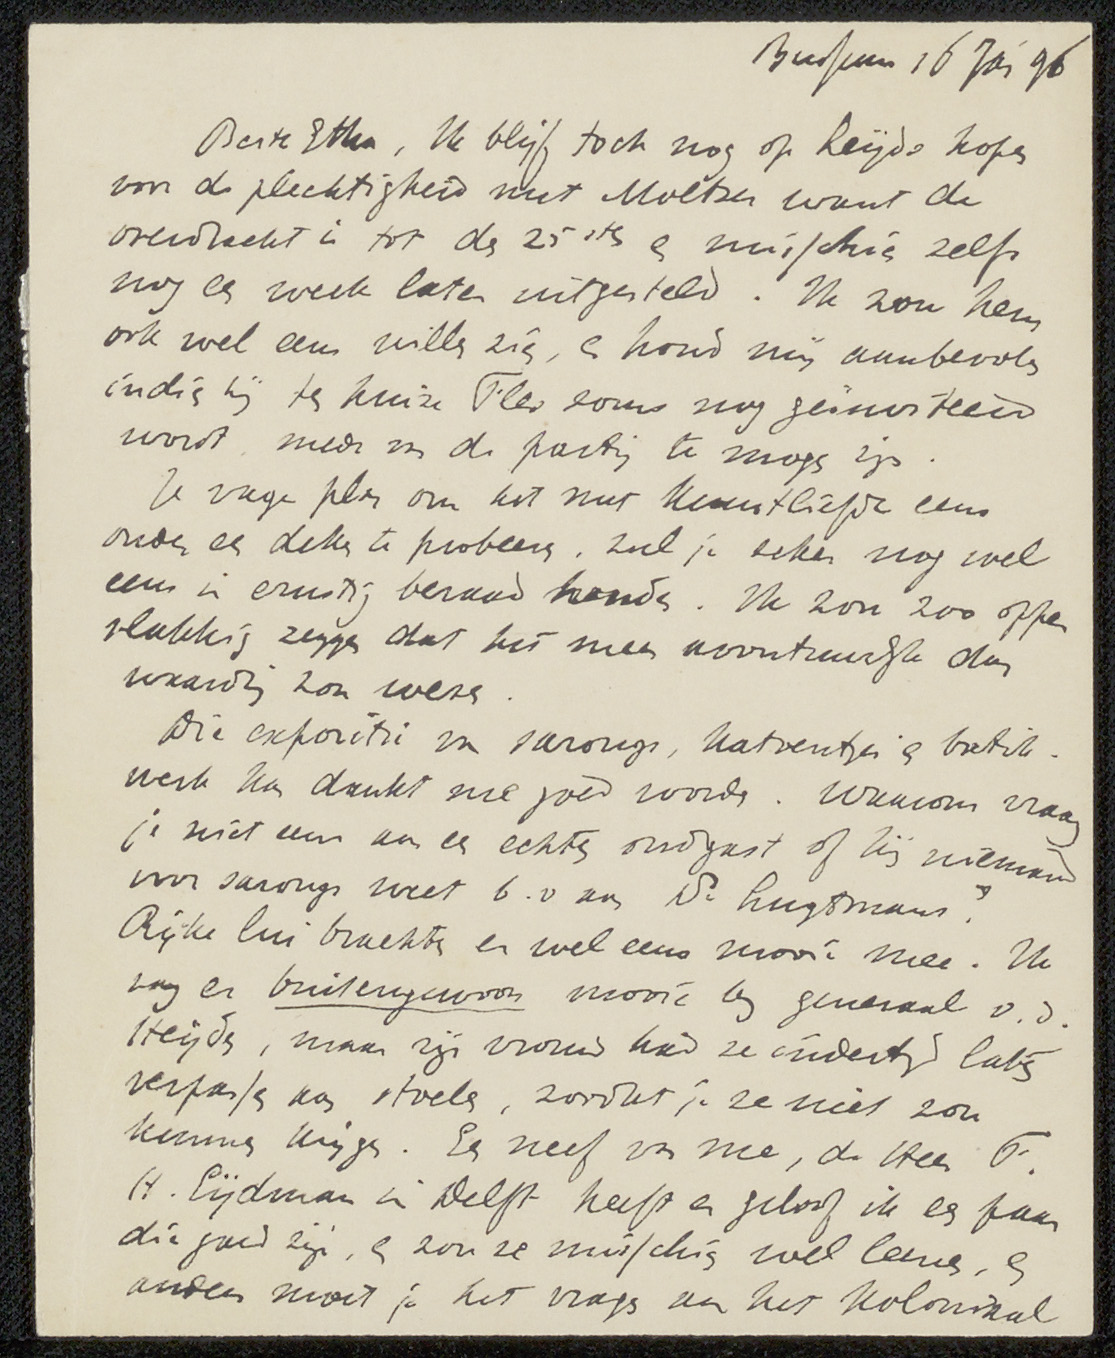 Bussum 16 Jan 96
Beste Etha, Ik blijf toch nog op Leijds hopen
voor de plechtigheid met Moltzer want de
overdracht is tot den 25sten en misschien zelfs
nog een week later uitgesteld. Ik zou hem
ook wel eens willen zien, en houd mij aanbevolen
indien hij ten huize Fles soms nog geinviteerd
wordt mede van de partij te mogen zijn.
Je vage plan om het met Kunstliefde eens
onder een deken te probeeren, zul je zeker nog wel
eens in ernstig beraad houden. Ik zou zoo opper
vlakkig zeggen dat het meer avontuurlijk dan
waardig zou wezen.
Die expositie van sarongs, katoentjes en batik-
werk kan dunkt me goed worden. Waarom vraag
je niet eens aan een echten oudgast of hij niemand
voor sarongs weet b.v aan Dr Lugtmans?
Rijke lui brachten er wel eens mooie mee. Ik
zag er buitengewoon mooie bij generaal v.d.
Heijden, maar zijn vrouw had ze indertijd laten
verpassen aan stoelen, zoodat je ze niet zou
kunnen krijgen. Een neef van me, de Heer F.
H. Eijdman in Delft heeft er geloof ik een paar
die goed zijn, en zou ze misschien wel leenen, en
anders moet je het vragen aan het Koloniaal